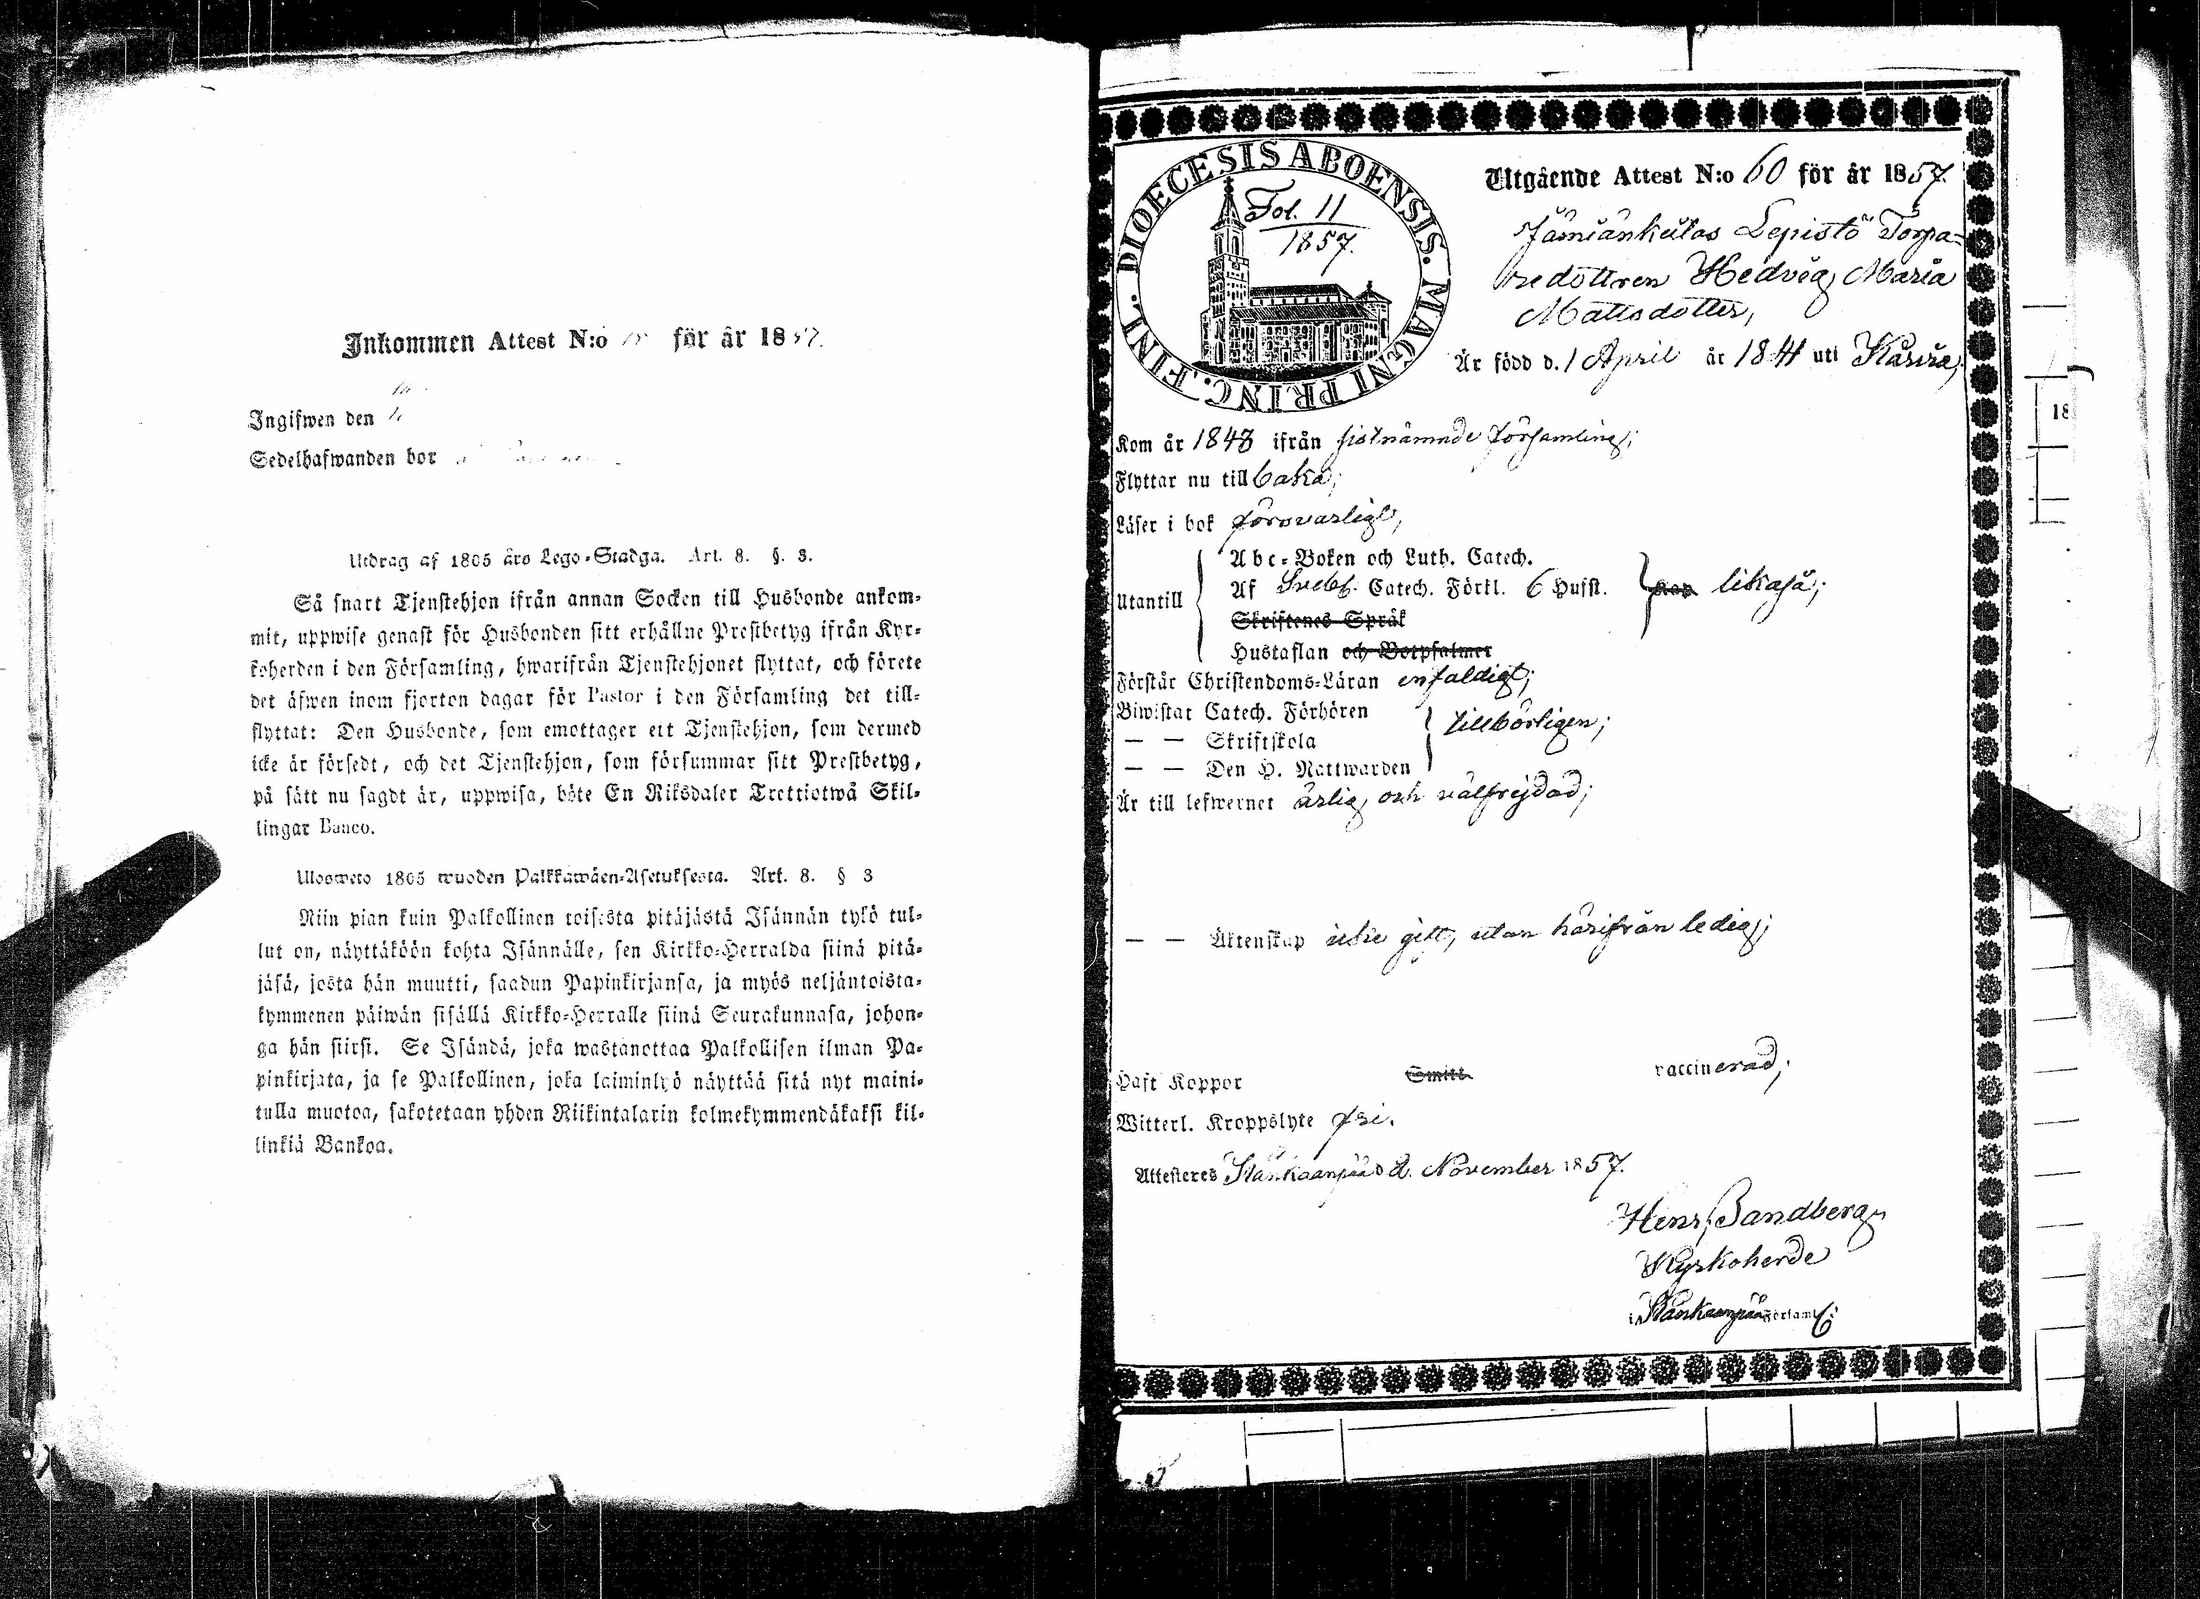 Inkommen Attest N:o för år 1857.
Ingifwen den
Sedelhafwanden bor
Utdrag af 1805 års Lego-Stadga. Art. 8. §. 3.
Så snart Tjenstehjon ifrån annan Socken till Husbonde ankom-
mit, uppwise genast för Husbonden sitt erhållne Prestbetyg ifrån Kyr-
koherden i den Församling, hwarifrån Tjenstehjonet flyttat, och förete
det äfwen inom fjorton dagar för Pastor i den Församling det till-
flyttat: Den Husbonde, som emottager ett Tjenstehjon, som dermed
icke är försedt, och det Tjenstehjon, som försummar sitt Prestbetyg,
på sätt nu sagdt är, uppwisa, böte En Riksdaler Trettiotwå Skil-
lingar Banco.
Ulosweto 1805 wuoden Palkkawäen-Asetuksesta. Art. 8. § 3
Niin pian kuin Palkollinen toisesta pitäjästä Isännän tykö tul-
lut on, näyttäköön kohta Isännälle, sen Kirkko-Herralda siinä pitä-
jäsä, josta hän muutti, saadun Papinkirjansa, ja myös neljäntoista-
kymmenen päiwän sisällä Kirkko-Herralle siinä Seurakunnasa, johon-
ga hän siirsi. Se Isändä, joka wastanottaa Palkollisen ilman Pa-
pinkirjata, ja se Palkollinen, joka laiminlyö näyttää sitä nyt maini-
tulla muotoa, sakotetaan yhden Riikintalarin kolmekymmendäkaksi kil-
linkiä Bankoa.
DIOECESIS ABOENSIS. MAGNI PRINC. FINL.
Fol. 11
1857.
Utgående Attest N:o 60 för år 1857.
Jämiänkeitas Lepistö Torpa-
redottren Hedvig Maria
Mattsdotter,
Är född d. 1 April år 1841 uti Karvia,
Kom år 1843 ifrån sistnämnde församling;
Flyttar nu till baka;
Läser i bok försvarligt,
Abc-Boken och Luth. Catech.
Utantill Af Svebel. Catech. Förkl. 6 Hufst. Kan likaså;
Skriftenes Språk
Hustaflan och Botpsalmer
Förstår Christendoms-Läran enfaldigt;
Biwistat Catech. Förhören
— — Skriftskola tillbörligen;
— — Den H. Nattwarden
Är till lefwernet ärlig och välfrejdad;
— — Äktenskap icke gift, utan härifrån ledig;
Haft Koppor Smitt vaccinerad;
Witterl. Kroppslyte fri.
Attesteres Kankaanpää d 2. November 1857.
Henr. Sandberg
Kyrkoherde
i Kankaanpää Församl:
18